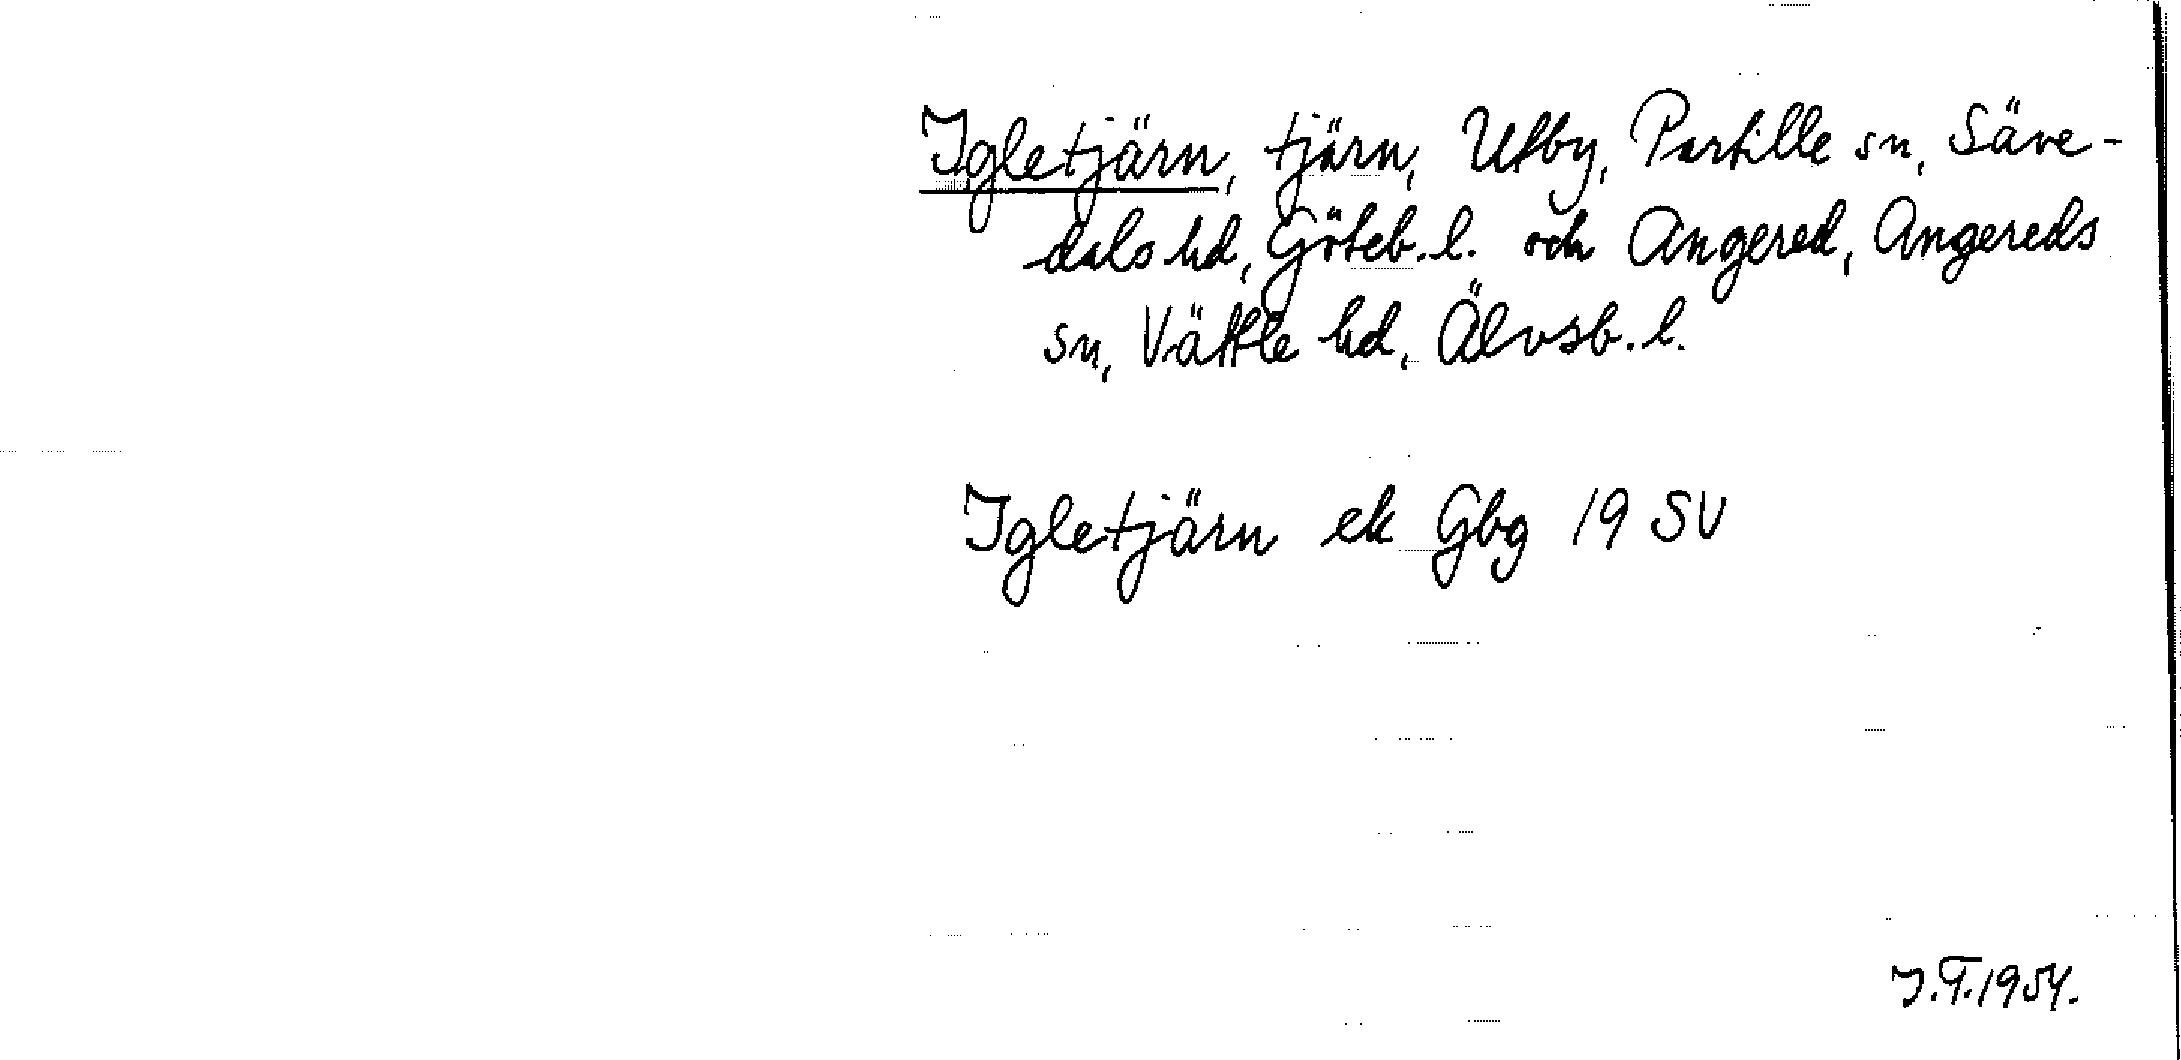 Igletjärn, tjärn, Utby, Partille sn, Säve-
dals hd, Göteb. l. och Angered, Angereds
sn, Vättle hd, Älvsb. l.
Igletjärn ek Gbg 19 SV
I.T. 1954.